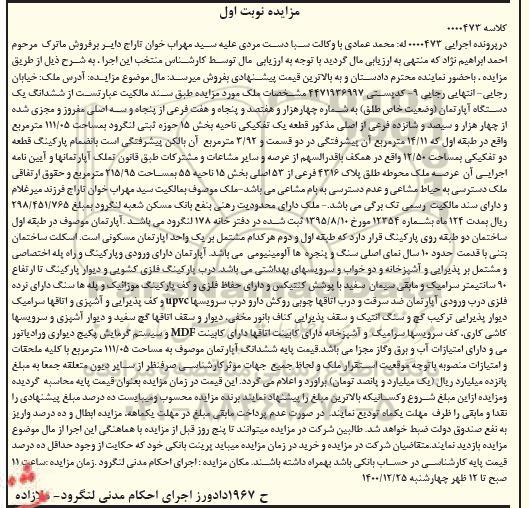 مزایده نوبت اول
کلاسه ۰۰۰۰۴۷۳
درپرونده اجرایی ۰۰۰۰۴۷۳ له: محمد عمادی با وکالت سبا دست مردی علیه سید مهراب خوان تاراج دایر برفروش ماترک مرحوم
احمد ابراهیم نژاد که منتهی به ارزیابی مال گردید با توجه به ارزیابی مال توسط کارشناس منتخب این اجرا ، به شرح ذیل از طریق
مزایده ، باحضور نماینده محترم دادستان و به بالاترین قیمت پیشنهادی بفروش میرسد: مال موضوع مزایده: آدرس ملک: خیابان
رجایی- انتهایی رجایی ۹- کدپستی ۴۴۷۱۹۳۶۹۹۷ مشخصات ملک مورد مزایده طبق سند مالکیت عبارتست از ششدانگ یک
دستگاه آپارتمان (وضعیت خاص طلق) به شماره چهارهزار و هفتصد و پنجاه و هفت فرعی از پنجاه و سه اصلی مفروز و مجزی شده
از چهار هزار و سیصد و شانزده فرعی از اصلی مذکور قطعه یک تفکیکی ناحیه بخش ۱۵ حوزه ثبتی لنگرود بمساحت ۱۱۱/۰۵ مترمربع
واقع در طبقه اول که ۱۴/۱۱ مترمربع آن پیشرفتگی در دو قسمت و ۳/۹۲ مترمربع آن بالکن پیشرفتگی است بانضمام پارکینگ قطعه
دو تفکیکی بمساحت ۱۲/۵۰ واقع در همکف باقدرالسهم از عرصه و سایر مشاعات و مشترکات طبق قانون تملک آپارتمانها و آیین نامه
اجرایی آن عرصه ملک محوطه طلق پلاک ۴۳۱۶ فرعی از ۵۳ اصلی بخش ۱۵ تا حیه ۵۵ بمساحت ۲۱۵/۹۵ مترمربع و حقوق ارتفاقی
ملک دسترسی به حیاط مشاعی و عدم دسترسی به بام مشاعی می باشد-ملک موصوف بمالکیت سید مهراب خوان تاراج فرزند میرغلام
و دارای سند مالکیت رسمی تک برگی می باشد.- ملک دارای محدودیت رهنی بنفع بانک مسکن شعبه لنگرود بمبلغ ۲۹۸/۴۵۱/۷۶۵
ریال بمدت ۱۲۴ ماه بشماره ۱۲۳۵۴ مورخ ۱۳۹۵/۸/۱۰ ثبت شده در دفتر خانه ۱۷۸ لنگرود می باشند . آپارتمان موصوف در طبقه اول
ساختمان دو طبقه روی پارکینگ قرار دارد که طبقه اول و دوم هرکدام مشتمل بر یک واحد آپارتمان مسکونی است. اسکلت ساختمان
بتنی با قدمت حدود ۱۰ سال نمای اصلی سنگ و پنجره ها آلومینیومی می باشد. آپارتمان دارای ورودی وپارکینگ و راه پله اختصاصی
و مشتمل بر پذیرایی و آشپزخانه و دو خواب و سرویسهای بهداشتی می باشد. درب پارکینگ فلزی کشویی و دیوار پارکینگ تا ارتفاع
۹۰ سانتیمتر سرامیک و مابقی سیمان سفید با پوشش کنتیکس و دارای حفاظ فلزی و کف پارکینگ موزائیک و پله ها سنگ دارای نرده
فلزی درب ورودی آپارتمان ضد سرقت و درب اتاقها چوبی روکش دارو درب سرویسها upvc و کف پذیرایی و آشپزی و اتاقها سرامیک
دیوار پذیرایی ترکیب گچ و سنگ آنتیک و سقف پذیرایی کناف بانور مخفی، دیوار و سقف اتاقها گچ سفید و دیوار آشپزی و سرویسها
کاشی کاری، کف سرویسها سرامیک و آشپزخانه دارای کابینت اتاقها دارای کابینت MDF و سیستم گرمایش پکیج دیواری ورادیاتور
می و دارای امتیازات آب و برق وگاز مجزا می باشد.قیمت پایه ششدانگ آپارتمان موصوف به مساحت ۱۱۱/۰۵ مترمربع با کلیه ملحقات
و امتیازات منصوبه باتوجه موقعیت استقرار ملک و لحاظ جمیع جهات موثر کارشناسی صرفنظر از سایر دیون متعلقه جمعا به مبلغ
پانزده میلیارد ریال (یک میلیارد و پانصد تومان) برآورد و اعلام می گردد. این قیمت در زمان مزایده بعنوان قیمت پایه محاسبه گردیده
ومزایده ازاین مبلغ شروع وکسانیکه بالاترین مبلغ را پیشنهاد نمایند برنده مزایده محسوب ومیبایست ده درصد مبلغ پیشنهادی را
نقدا و مابقی را ظرف مهلت یکماه تودیع نمایند . در صورت عدم پرداخت مابقی مبلغ در مهلت یکماهه، مزایده ابطال و ده درصد واریز
به نفع صندوق دولت ضبط خواهد شد. طالبین شرکت در مزایده میتوانند تا پنج روز قبل از مزایده با هماهنگی این اجرا از مال موضوع
مزایده بازدید نمایند.متقاضیان شرکت در مزایده و خرید در زمان مزایده میباید پرینت بانکی خود که حکایت از وجود حداقل ده درصد
قیمت پایه کارشناسی در حساب بانکی باشد بهمراه داشته باشند. مکان مزایده : اجرای احکام مدنی لنگرود .زمان مزایده :ساعت ۱۱
صبح تا ۱۲ ظهر چهارشنبه ۱۴۰۰/۱۲/۲۵
ح ۱۹۶۷ دادورز اجرای احکام مدنی لنگرود- ملازاده